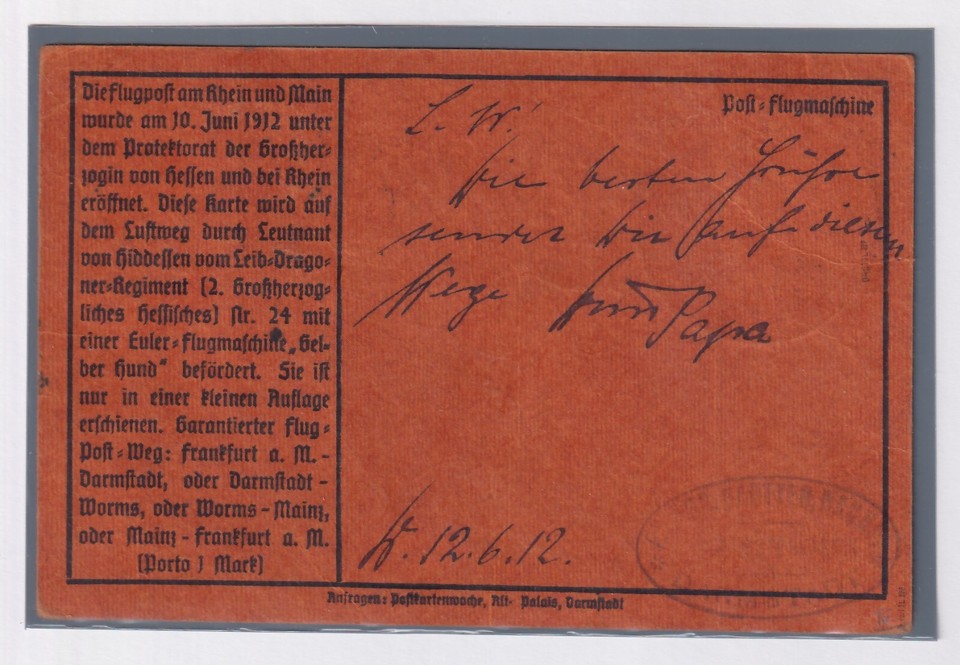 Die Flugpost am Rhein und Main
wurde am 10. Juni 1912 unter
dem Protektorat der Großher-
zogin von Hessen und bei Rhein
eröffnet. Diese Karte wird auf
dem Luftweg durch Leutnant
von Hiddessen vom Leib-Drago-
ner-Regiment (2. Großherzog-
liches Hessisches) Nr. 24 mit
einer Euler-Flugmaschine „Gel-
ber Hund" befördert. Sie ist
nur in einer kleinen Auflage
erschienen. Garantierter Flug-
Post-Weg: Frankfurt a. M.-
Darmstadt, oder Darmstadt-
Worms, oder Worms-Mainz,
oder Mainz-Frankfurt a. M.
(Porto 1 Mark)
Post-Flugmaschine
L. W.
Die besten Grüße
sendet Dir auf diesem
Wege Papa
12.6.12.
Anfragen: Postkartenwoche, Alt-Palais, Darmstadt